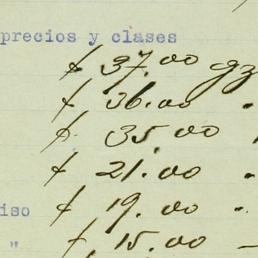 precios y clases
$ 37.00 gz
$ 36.00 "
$ 35.00
$ 21.00 "
iso $ 19.00 "
" $ 15.00